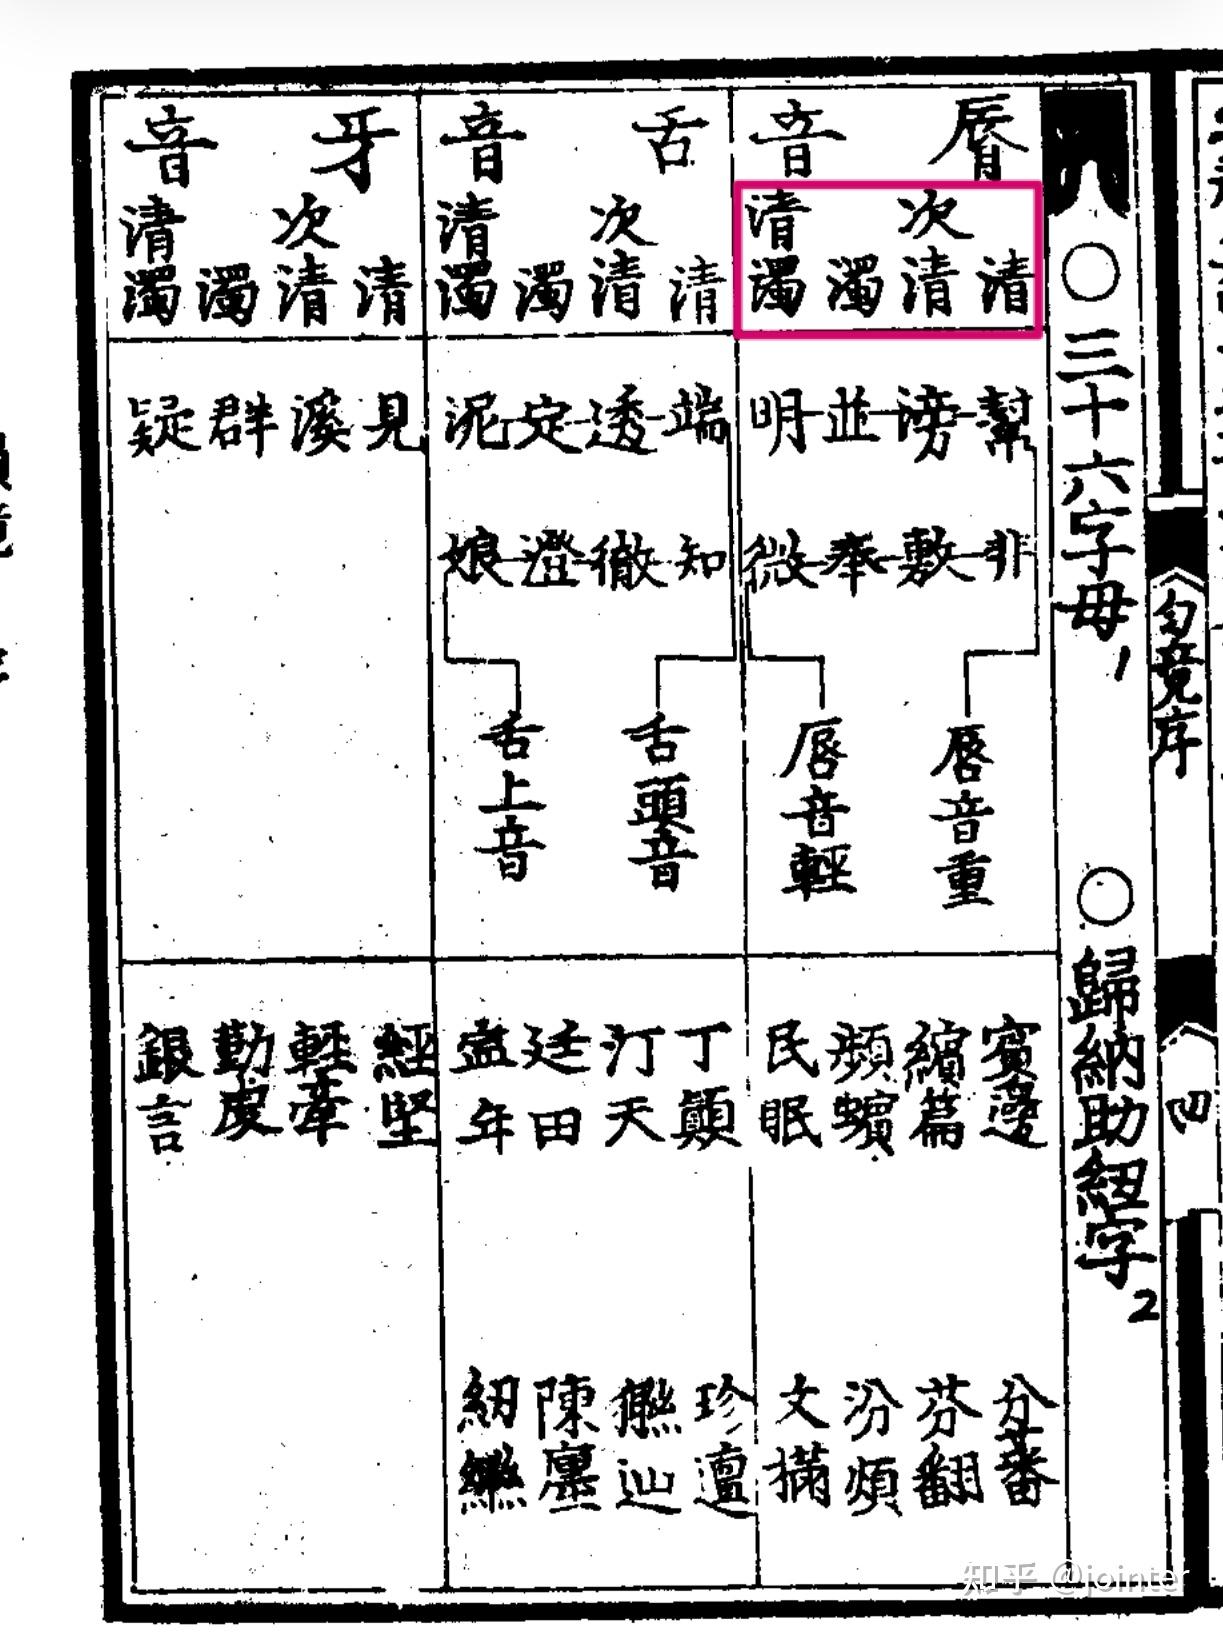 〇三十六字母
〇歸納助紐字
2
脣音
清
次清
濁
清濁
幫滂並明
非敷奉微
脣音重
脣音輕
賓邊
繽篇
頻蠙
民眠
分蕃
芬翻
汾煩
文樠
舌音
清
次清
濁
清濁
端透定泥
知徹澄娘
舌頭音
舌上音
丁顛
汀天
廷田
年
珍邅
辿
陳廛
紉
牙音
清
次清
濁
清濁
見溪群疑
經堅
輕牽
勤虔
銀言
匀竟序
四
知乎 @jointer